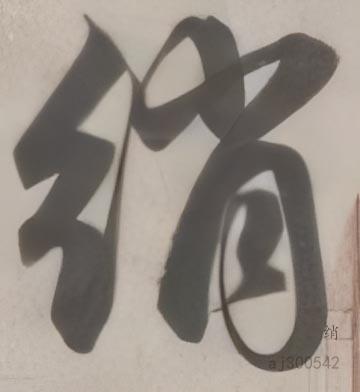 绡
绡
aj300542